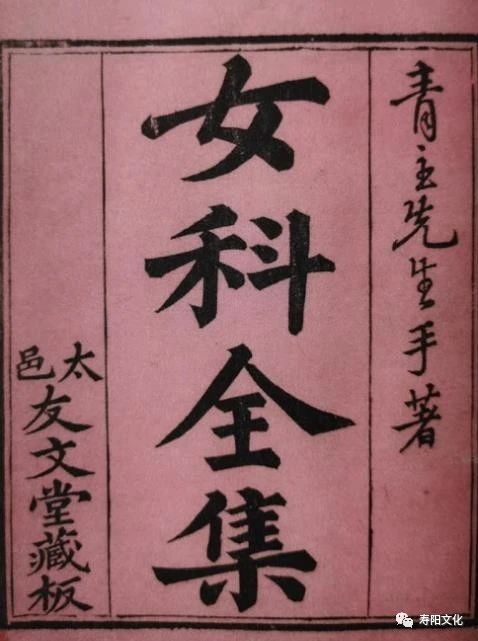 青主先生手著
女科全集
太邑
友文堂藏板
寿阳文化